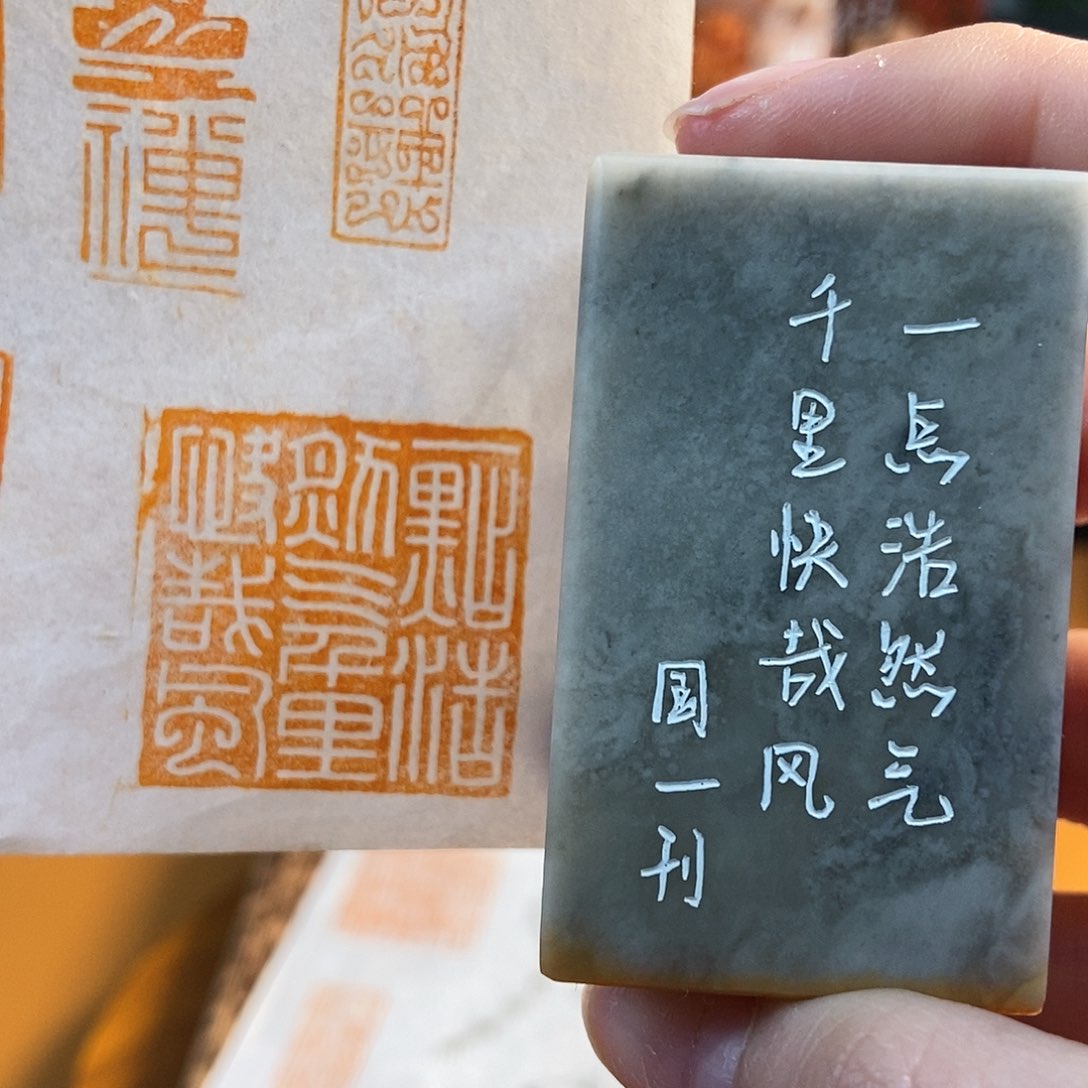 一点浩然气
千里快哉风
国一刊
一點浩
然气千里
快哉風